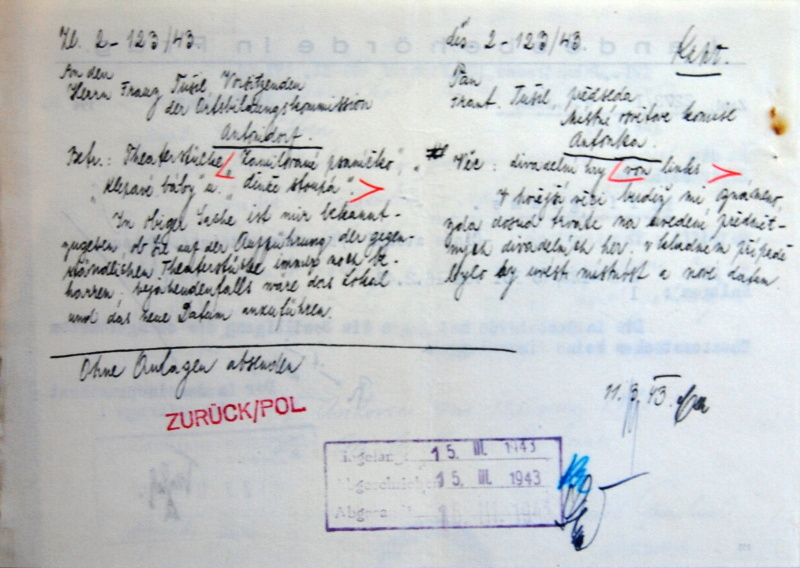 Zl. 2 - 123/43.
An den
Herrn Franz Tušel, Vorsitzenden
der Ortsbildungskommission
Antondorf.
Betr.: Theaterstücke „Zamilované psaníčko“, „
Klepavé báby“ u. „
In obiger Sache ist mir bekannt-
zugeben ob Sie auf der Aufführung der gegen-
ständlichen Theaterstücke immer noch be-
harren, bejahendenfalls wäre das Lokal
und das neue Datum anzuführen.
Ohne Anlagen absenden
čís. 2 - 123/43.
Konz.
Pan
Frant. Tušel, předseda
Místní osvětové komise
Antonka.
Věc: divadelní hry von links
V hořejší věci budiž mi oznámeno,
zda dosud trváte na uvedení předmět-
ných divadelních her, v kladném případě
bylo by uvésti místnost a nové datum
ZURÜCK/POL
11.3.43.
Eingelangt 15. III. 1943
Abgeschrieben 15. III. 1943